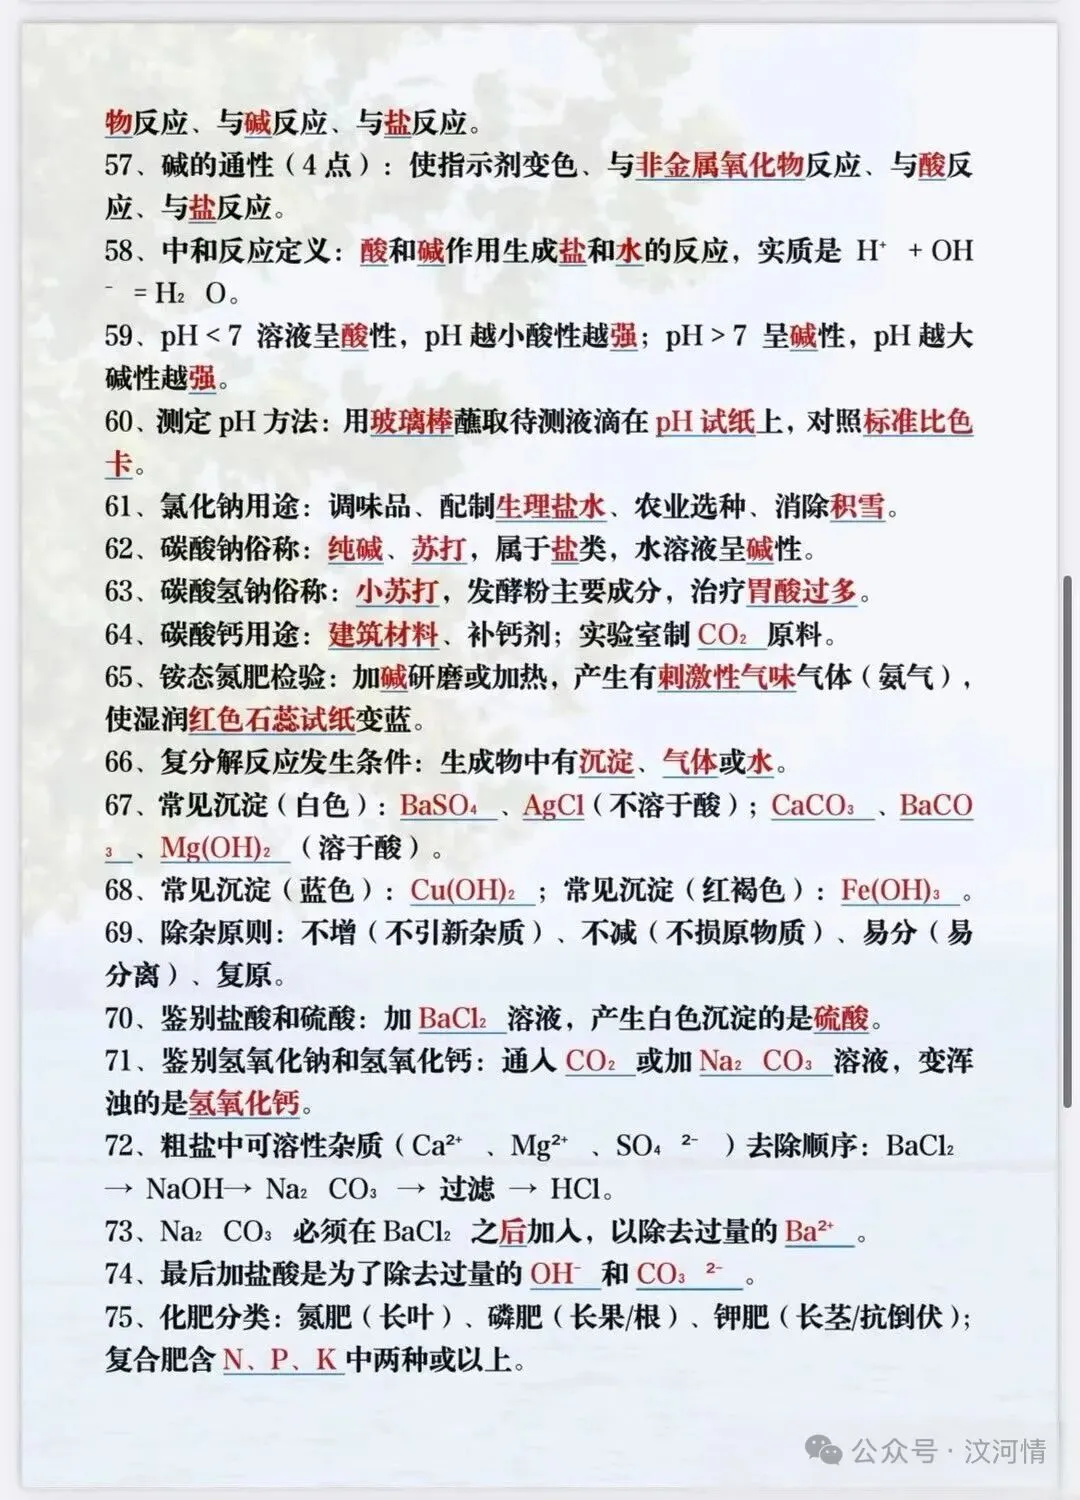 物反应、与碱反应、与盐反应。
57、碱的通性（4点）：使指示剂变色、与非金属氧化物反应、与酸反
应、与盐反应。
58、中和反应定义：酸和碱作用生成盐和水的反应，实质是 H⁺ + OH
⁻ = H₂ O。
59、pH < 7 溶液呈酸性，pH 越小酸性越强；pH > 7 呈碱性，pH 越大
碱性越强。
60、测定 pH 方法：用玻璃棒蘸取待测液滴在 pH 试纸上，对照标准比色
卡。
61、氯化钠用途：调味品、配制生理盐水、农业选种、消除积雪。
62、碳酸钠俗称：纯碱、苏打，属于盐类，水溶液呈碱性。
63、碳酸氢钠俗称：小苏打，发酵粉主要成分，治疗胃酸过多。
64、碳酸钙用途：建筑材料、补钙剂；实验室制 CO₂ 原料。
65、铵态氮肥检验：加碱研磨或加热，产生有刺激性气味气体（氨气），
使湿润红色石蕊试纸变蓝。
66、复分解反应发生条件：生成物中有沉淀、气体或水。
67、常见沉淀（白色）：BaSO₄ 、AgCl（不溶于酸）；CaCO₃ 、BaCO
₃ 、Mg(OH)₂ （溶于酸）。
68、常见沉淀（蓝色）：Cu(OH)₂ ；常见沉淀（红褐色）：Fe(OH)₃ 。
69、除杂原则：不增（不引新杂质）、不减（不损原物质）、易分（易
分离）、复原。
70、鉴别盐酸和硫酸：加 BaCl₂ 溶液，产生白色沉淀的是硫酸。
71、鉴别氢氧化钠和氢氧化钙：通入 CO₂ 或加 Na₂ CO₃ 溶液，变浑
浊的是氢氧化钙。
72、粗盐中可溶性杂质（Ca²⁺ 、Mg²⁺ 、SO₄ ²⁻ ）去除顺序：BaCl₂
→ NaOH→ Na₂ CO₃ → 过滤 → HCl。
73、Na₂ CO₃ 必须在 BaCl₂ 之后加入，以除去过量的 Ba²⁺ 。
74、最后加盐酸是为了除去过量的 OH⁻ 和 CO₃ ²⁻ 。
75、化肥分类：氮肥（长叶）、磷肥（长果/根）、钾肥（长茎/抗倒伏）；
复合肥含 N、P、K 中两种或以上。
公众号·汶河情